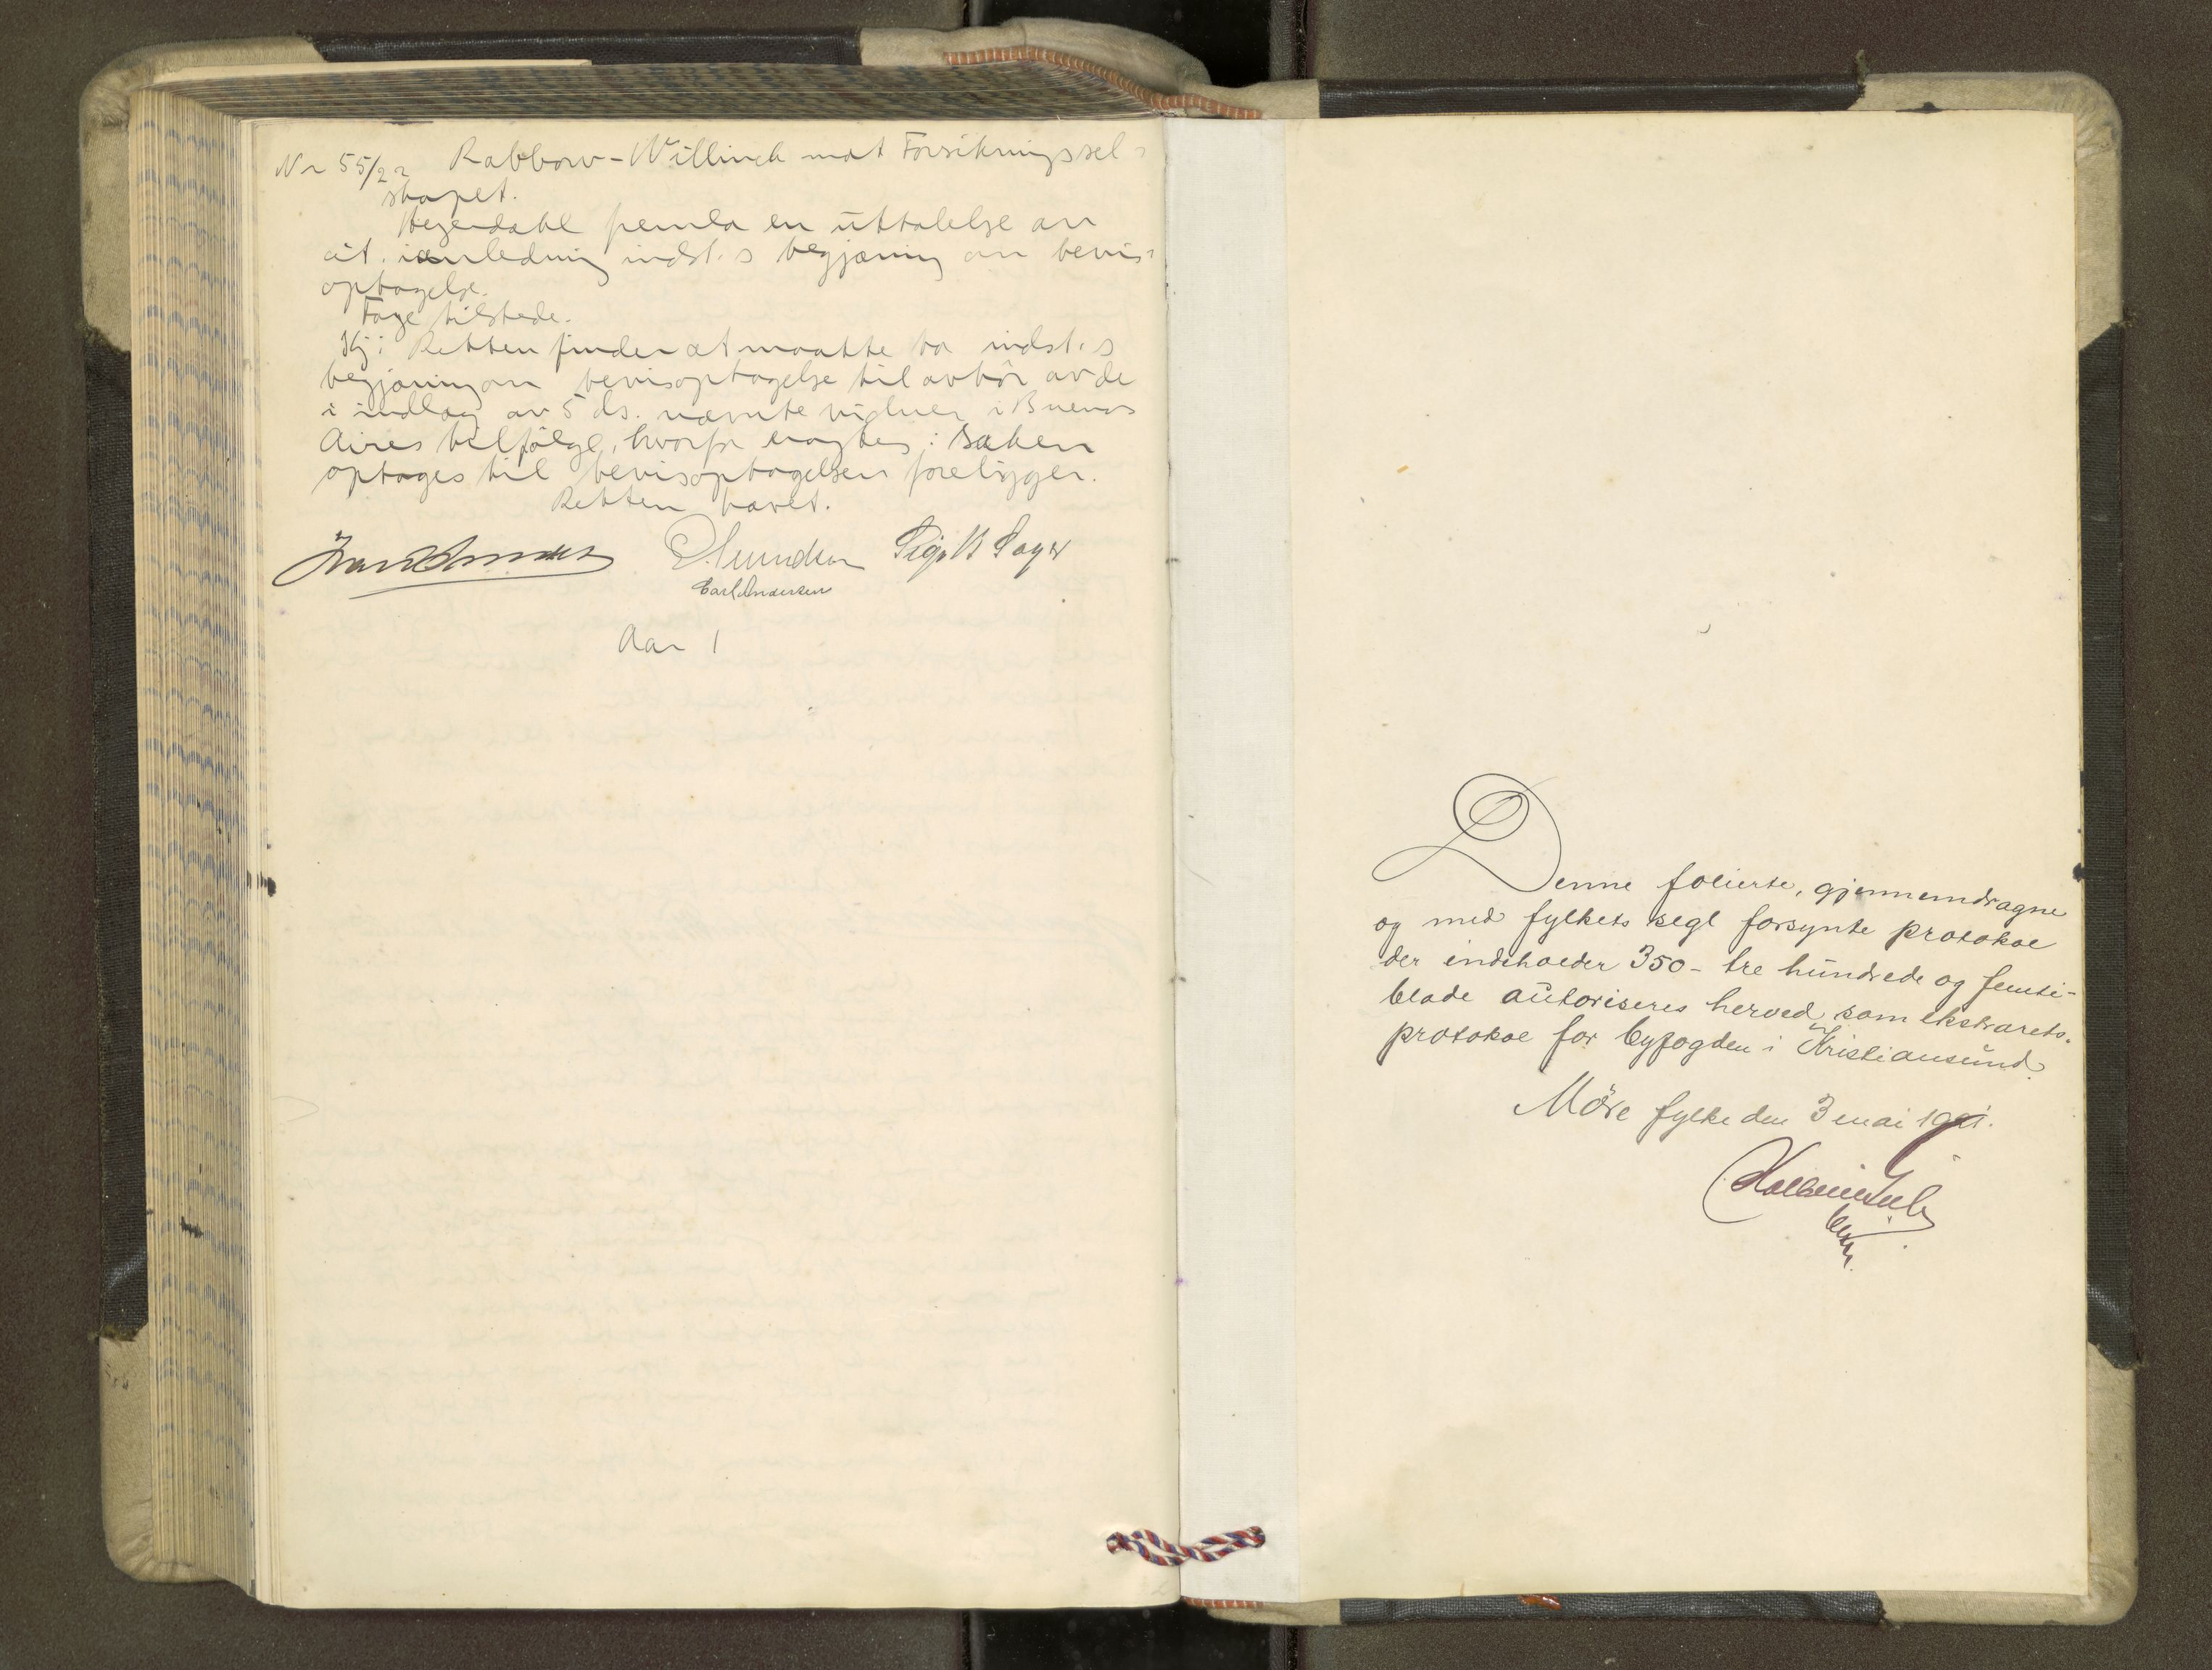 Nr 55/22 Rabbow-Willinck mot Forsikringssel-
skapet.
Hegerdahl fremla en uttalelse av
cit. i anledning indst.s begjæring om bevis-
optagelse.
Foge tilstede.
Kj: Retten finder at maatte ta indst.s
begjæring om bevisoptagelse til avhör av de
i indlæg av 5 ds. nævnte vidner i Buenos
Aires tilfölge, hvorfor eragtes: Saken
optages til bevisoptagelsen foreligger.
Retten hævet.
Carl Andersen
Denne folierte, gjennemdragne
og med fylkets segl forsynte protokol
der indeholder 350 - tre hundrede og femti-
blade autoriseres herved som ekstrarets-
protokol for byfogden i Kristiansund.
Möre fylke den 3 mai 1921.